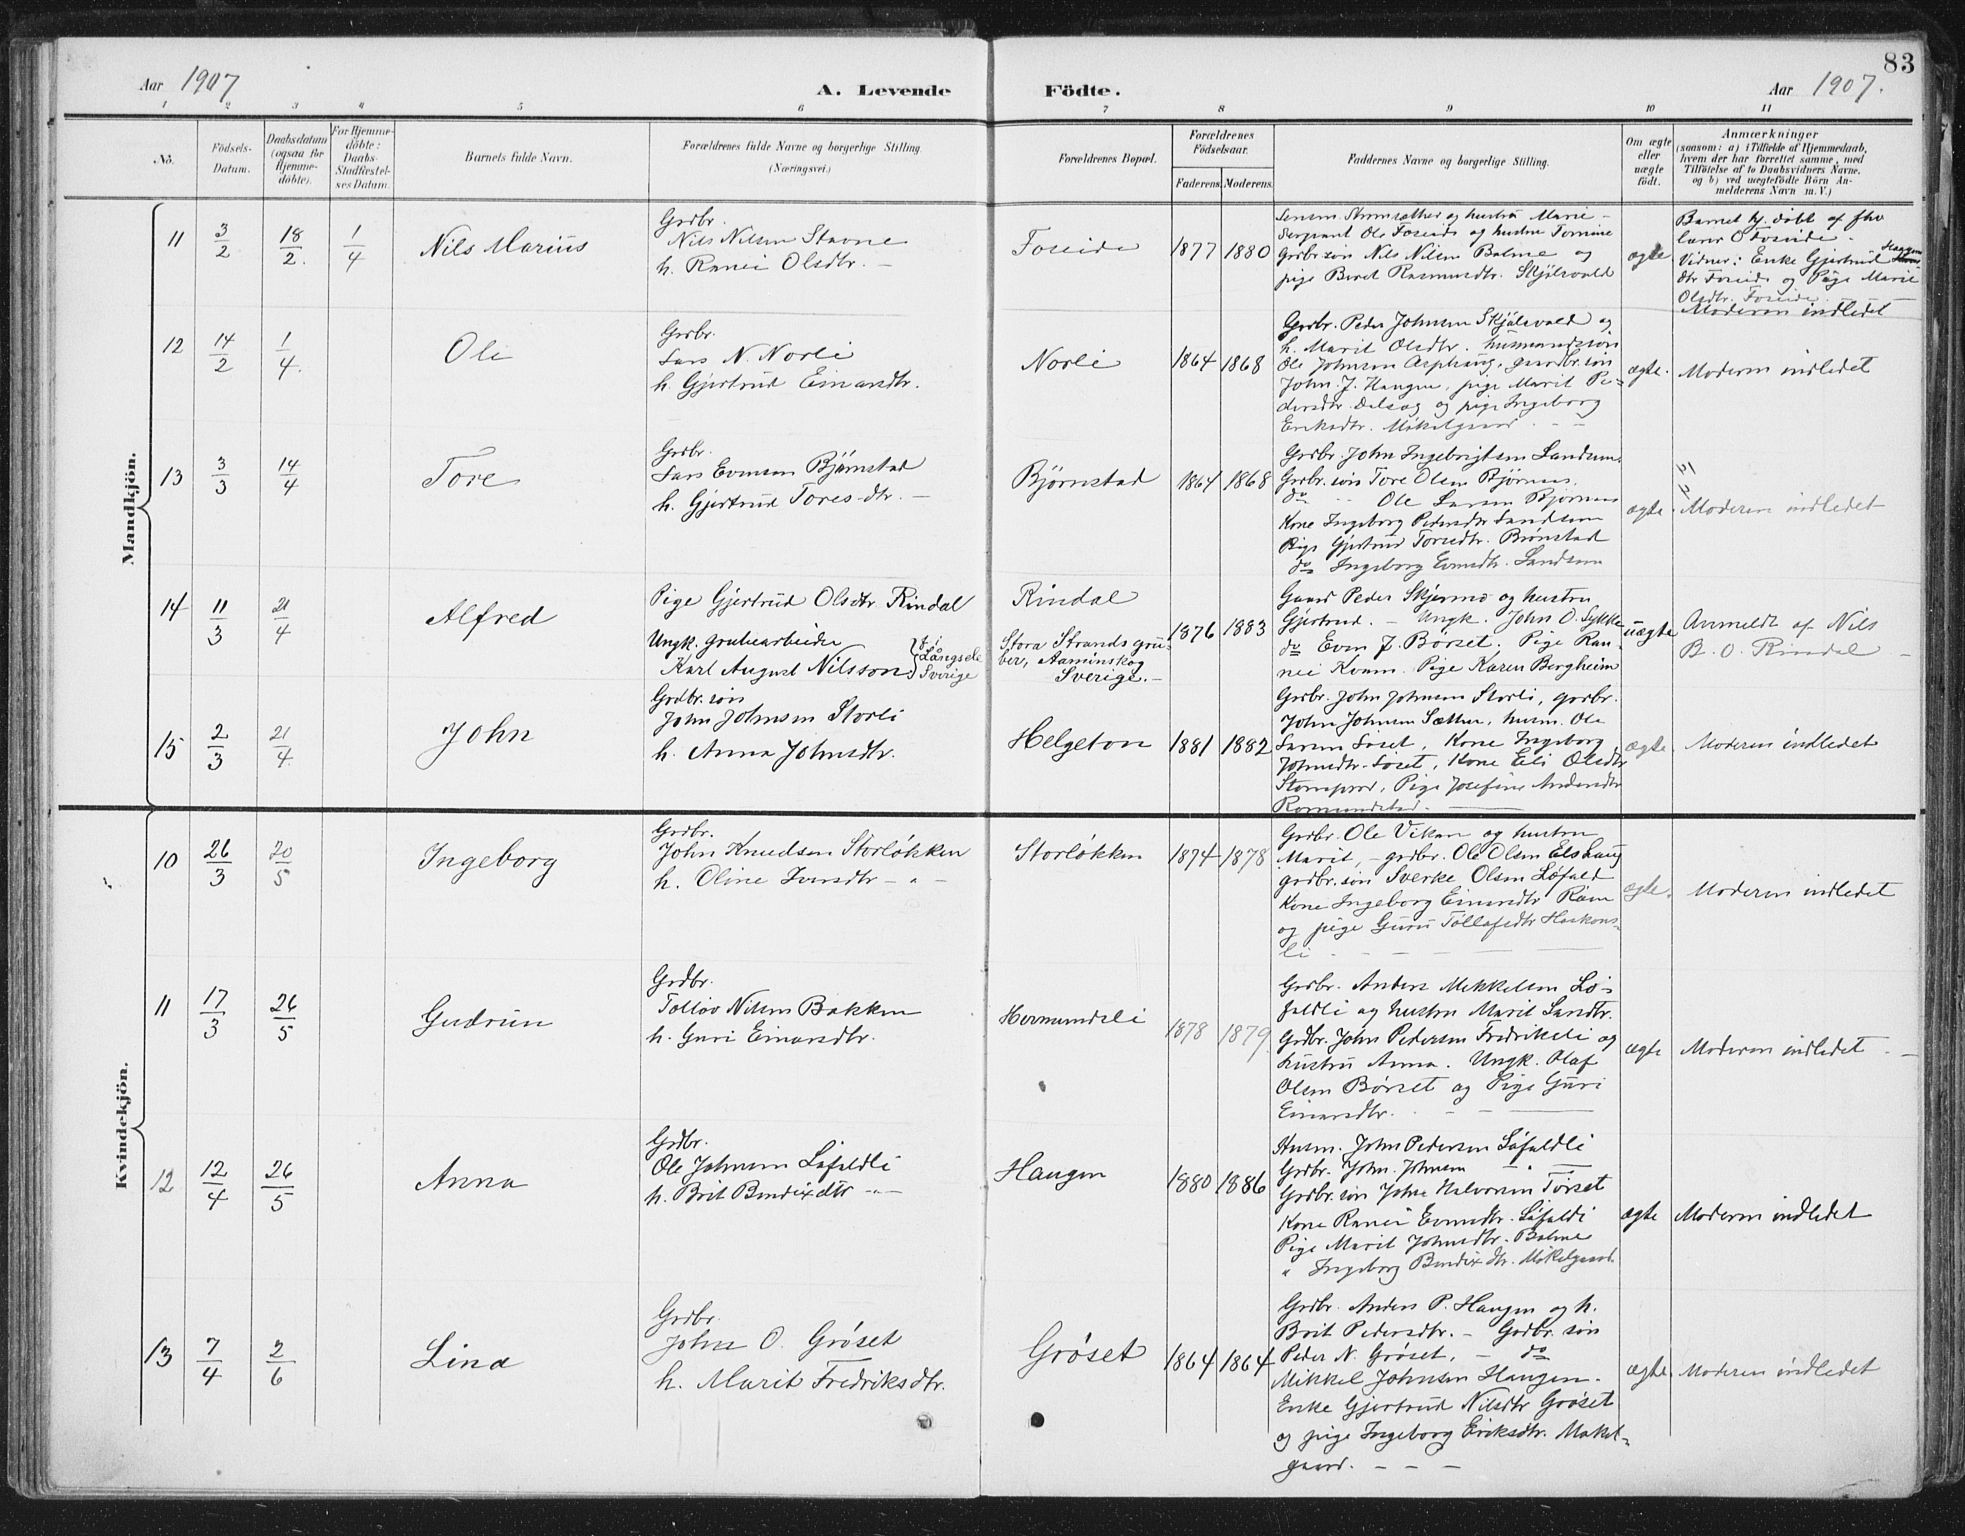 83
Aar 1907
A. Levende
Födte.
Aar 1907.
1 2 3 4 5 6 7 8 9 10 11
No.
Födsels-
Datum.
Daabsdatum
(ogsaa for
Hjemme-
döbte).
For Hjemme-
döbte:
Daabs-
Stadfæstel-
ses Datum.
Barnets fulde Navn.
Forældrenes fulde Navne og borgerlige Stilling.
(Næringsvei.)
Forældrenes Bopæl.
Forældrenes
Födselsaar.
Faderens. Moderens.
Faddernes Navne og borgerlige Stilling.
Om ægte
eller
uægte
födt.
Anmærkninger
(saasom: a) i Tilfælde af Hjemmedaab,
hvem der har forrettet samme, med
Tilföielse af to Daabsvidners Navne,
og b) ved uægtefödte Börn An-
melderens Navn m. V.)
Mandkjön.
11 3/2 18/2. 1/4 Nils Marius
Grdbr.
Nils Nilsen Stavne
h. Ranei Olsdtr. –
Foseide
1877 1880
og hustru Marie –
Sergeant Ole Foseide og hustru
Grdbr.søn Nils Nilsen Bolme og
pige Beret Rasmusdtr. Skjølsvold
ægte
Barnet hj. døbt af
Vidner: Enke Gjertrud
dtr Foseide og Pige Marie
Olsdtr. Foseide.
Moderen indledet
12 14/2 1/4. Ole
Grdbr.
Lars N. Norli
h. Gjertrud Einarsdtr.
Norli
1864 1868
Grdbr. Peder Johnsen Skjølsvold og
h. Marit Olsdtr. husmandssøn
Ole Johnsen Asphaug, gaardbr.søn
John J. Haugen, pige Marit Pe-
dersdtr. Dalseg og pige Ingeborg
Eriksdtr. Mokelgaard. – –
ægte.
Moderen indledet
13 3/3 14/4 Tore
Grdbr.
Lars Evensen Bjørnstad
h. Gjertrud Tores dtr. –
Bjørnstad
1864 1868
Grdbr. John Ingebrigtsen Landsem.
Grdbr. søn Tore Olsen Bjørnaas.
do Ole Larsen Bjørnaas
Kone Ingeborg Pedersdtr Landsem
Pige Gjertrud Toresdtr. Bjørnstad
do Ingeborg Evensdtr. Landsem
ægte.
Moderen indledet
14 11/3 21/4 Alfred
Pige Gjertrud Olsdtr Rindal
Ungk. grubearbeider
Karl August Nilsson } f. i Långsele Sverige
Rindal
Stora Strands gru-
ber, Aaminskog
Sverige. –
1876 1883
Gaard Peder Skjermo og hustru
Gjertrud. – Ungk. John O. Løkke
do Even J. Børset. Pige Ran-
nei Kvam. Pige Karen Bergheim
uægte
Anmeldt af Nils
B. O. Rindal –
15 2/3 21/4. John
Grdbr. søn
John Johnsen Storli
h. Anna Johnsdtr.
Helgeton
1881 1882
Grdbr. John Johnsen Storli, grdbr.
John Johnsen Sæther, husm. Ole
Larsen Løset, Kone Ingeborg
Johnsdtr. Løset, Kone Eli Olsdtr
Pige Josefine Andersdtr
Romundstad.
ægte.
Moderen indledet
Kvindekjön.
10 26/3 20/5 Ingeborg
Grdbr.
John Knudsen Storløkken
h. Oline Iversdtr – " –
Storløkken
1874 1878
Grdbr. Ole Vikan og hustru
Marit, – grdbr. Ole Olsen Elshaug
grdbr. søn Sverke Olsen Løfald
Kone Ingeborg Einarsdtr Røen
og pige Guru Tollefsdtr Haakons-
li – – –
ægte.
Moderen indledet
11 17/3 26/5 Gudrun
Grdbr.
Tollöv Nilsen Bakken
h. Guri Einarsdtr.
Hermundsli
1878 1879
Grdbr. Anders Mikkelsen Lø-
faldli og hustru Marit Larsdtr.
Grdbr. John Pedersen Fredriksli og
hustru Anna. Ungk. Olaf
Olsen Børset og Pige Guri
Einarsdtr. – – –
ægte
Moderen indledet –
12 12/4 26/5 Anna
Grdbr.
Ole Johnsen Løfaldli
h. Brit Bendixdtr – " –
Haugen
1880 1886
Husm. John Pedersen Løfaldli
Grdbr. John Johnsen – " –
Grdbr. søn John Halvorsen Tørset
Kone Ranei Evensdtr. Løfaldli
Pige Marit Johnsdtr. Bolme
" Ingeborg Bendix dtr. Mokelgaard.
ægte
Moderen indledet
13 7/4 2/6 Lina
Grdbr.
John O. Grøset
h. Marit Fredriksdtr.
Grøset
1864 1864
Grdbr. Anders P. Haugen og h.
Brit Pedersdtr. – Grdbr. søn
Peder N. Grøset, – do
Mikkel Johnsen Haugen.
Enke Gjertrud Nilsdtr Grøset
og pige Ingeborg Eriksdtr. Mokel-
gaard. – – –
ægte.
Moderen indledet